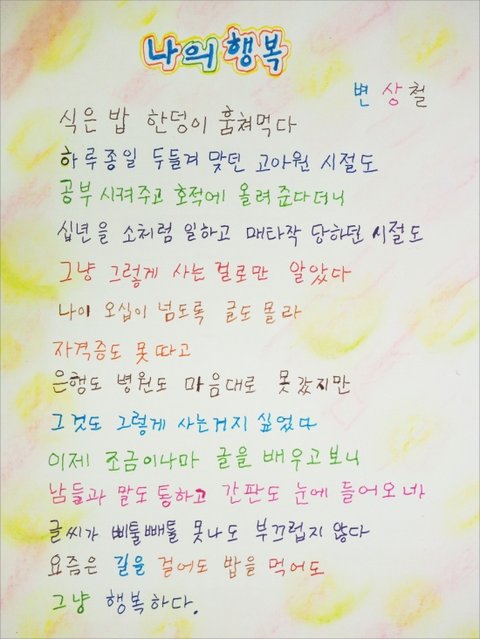 나의 행복
변 상 철
식은 밥 한덩이 훔쳐먹다
하루종일 두들겨 맞던 고아원 시절도
공부 시켜주고 호적에 올려 준다더니
십년을 소처럼 일하고 매타작 당하던 시절도
그냥 그렇게 사는 걸로만 알았다
나이 오십이 넘도록 글도 몰라
자격증도 못 따고
은행도 병원도 마음대로 못 갔지만
그것도 그렇게 사는거지 싶었다
이제 조금이나마 글을 배우고보니
남들과 말도 통하고 간판도 눈에 들어오네
글씨가 삐툴빼툴 못나도 부끄럽지 않다
요즘은 길을 걸어도 밥을 먹어도
그냥 행복하다.